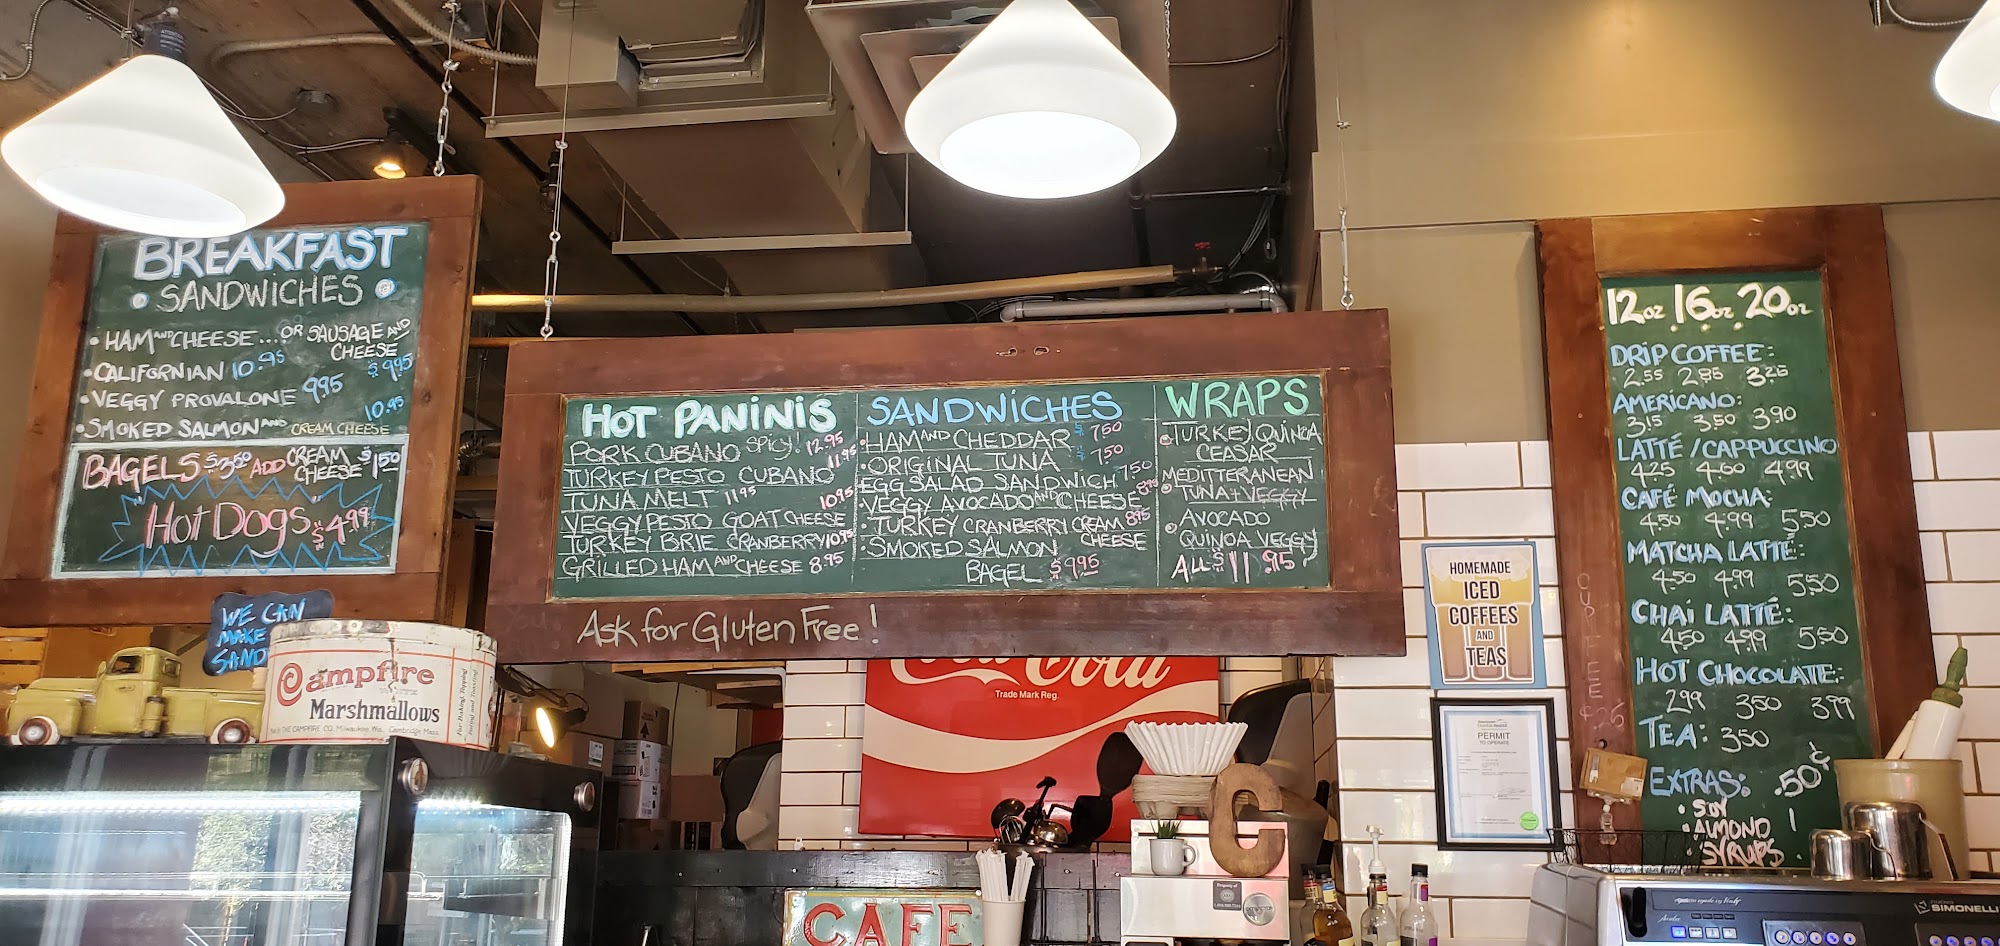 BREAKFAST
SANDWICHES
• HAM AND CHEESE.... OR SAUSAGE AND CHEESE $9.95
• CALIFORNIAN 10.95
• VEGGY PROVALONE 9.95
• SMOKED SALMON AND CREAM CHEESE 10.95
BAGELS $3.50 ADD CREAM CHEESE $1.50
HOT DOGS $4.99
WE CAN
MAKE
SAND
Campfire
Marshmallows
THE CAMPFIRE CO. Milwaukee Wis. Cambridge Mass.
For Baking, Topping
HOT PANINIS
PORK CUBANO SPICY! 12.95
TURKEY PESTO CUBANO 11.95
TUNA MELT 11.95
VEGGY PESTO GOAT CHEESE 10.95
TURKEY BRIE CRANBERRY 10.95
GRILLED HAM AND CHEESE 8.95
SANDWICHES
• HAM AND CHEDDAR $ 7.50
• ORIGINAL TUNA $ 7.50
EGG SALAD SANDWICH 7.50
• VEGGY AVOCADO AND CHEESE 8.95
• TURKEY CRANBERRY CREAM CHEESE 8.95
• SMOKED SALMON
BAGEL $9.95
WRAPS
• TURKEY, QUINOA
CEASAR
MEDITTERANEAN
• TUNA + VEGGY
• AVOCADO
• QUINOA VEGGY
ALL $11.95
ASK for Gluten Free!
Coca Cola
Trade Mark Reg.
CAFE
C
HOMEMADE
ICED
COFFEES
AND
TEAS
PERMIT
TO OPERATE
12oz. 16oz. 20oz
DRIP COFFEE:
2.55 2.85 3.25
AMERICANO:
3.15 3.50 3.90
LATTÉ / CAPPUCCINO
4.25 4.60 4.99
CAFÉ MOCHA:
4.50 4.99 5.50
MATCHA LATTÉ:
4.50 4.99 5.50
CHAI LATTÉ:
4.50 4.99 5.50
HOT CHOCOLATE:
2.99 3.50 3.99
TEA: 3.50
EXTRAS: .50¢
• SOY
• ALMOND
• SYRUPS
CUP FEE
SIMONELLI